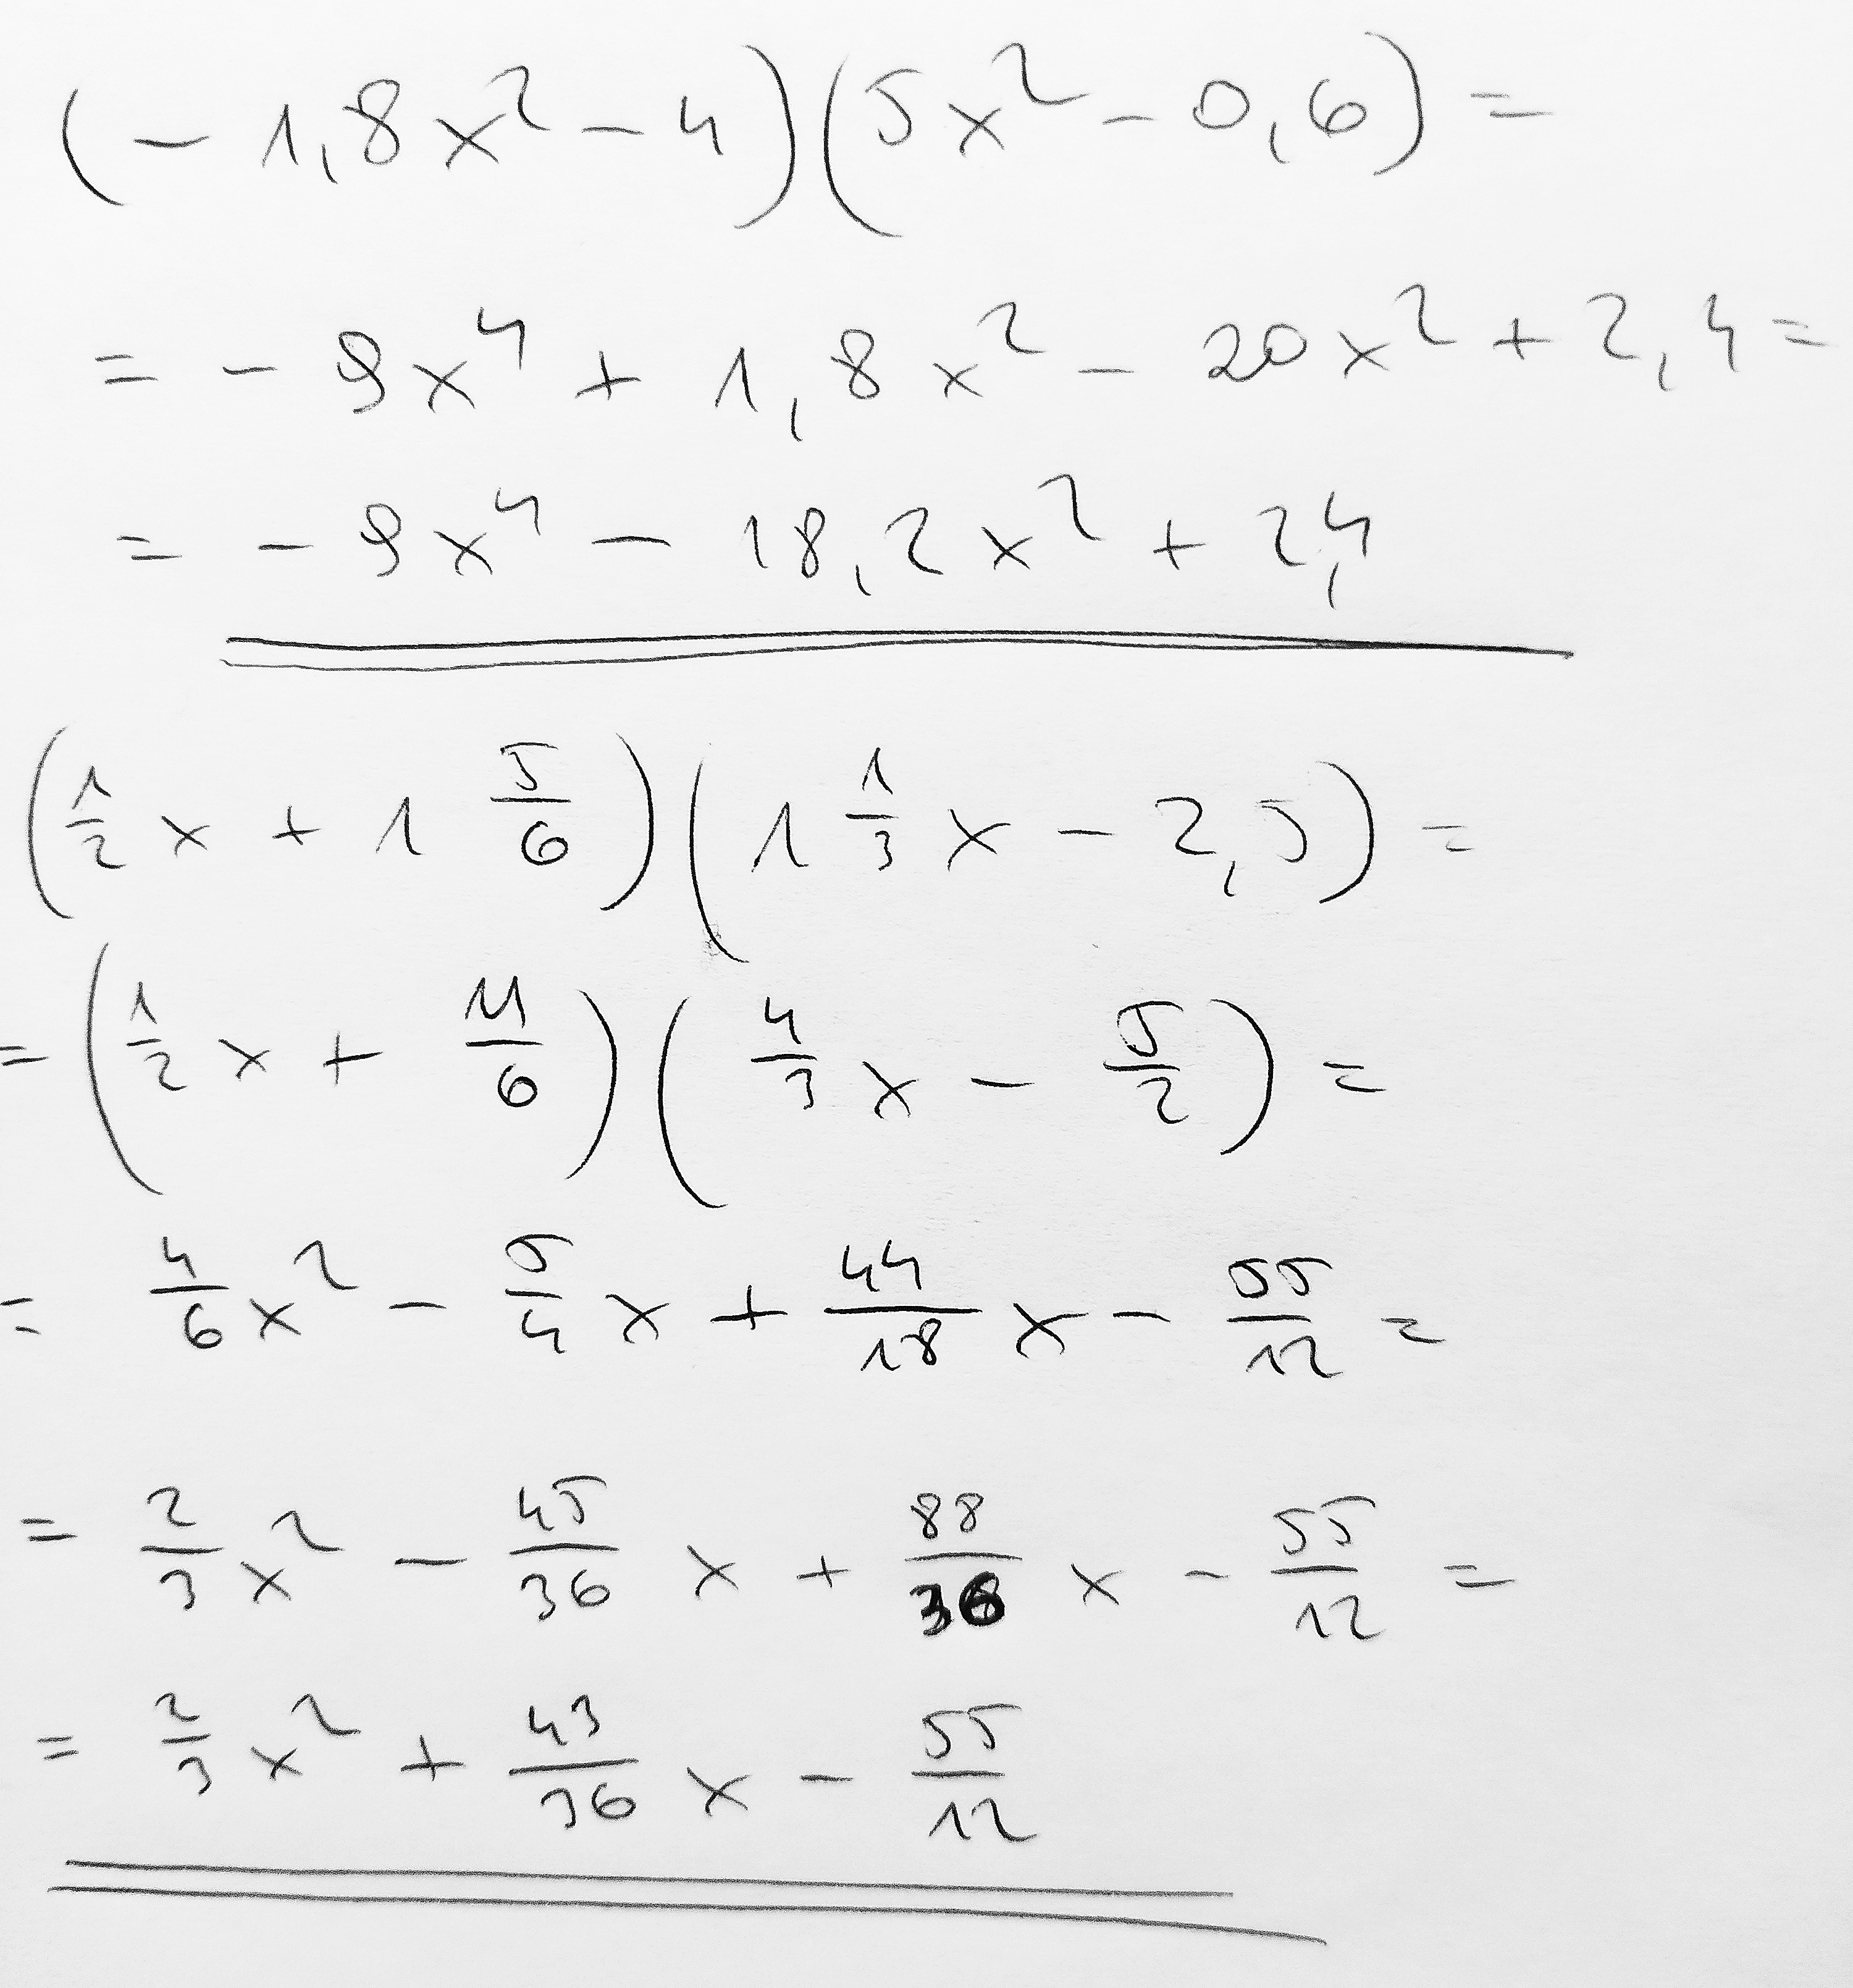 (-1,8x² - 4)(5x² - 0,6) =
= - 9x⁴ + 1,8x² - 20x² + 2,4 =
= - 9x⁴ - 18,2x² + 2,4
(1/2 x + 1 5/6)(1 1/3 x - 2,5) =
= (1/2 x + 11/6)(4/3 x - 5/2) =
= 4/6 x² - 5/4 x + 44/18 x - 55/12 =
= 2/3 x² - 45/36 x + 88/36 x - 55/12 =
= 2/3 x² + 43/36 x - 55/12